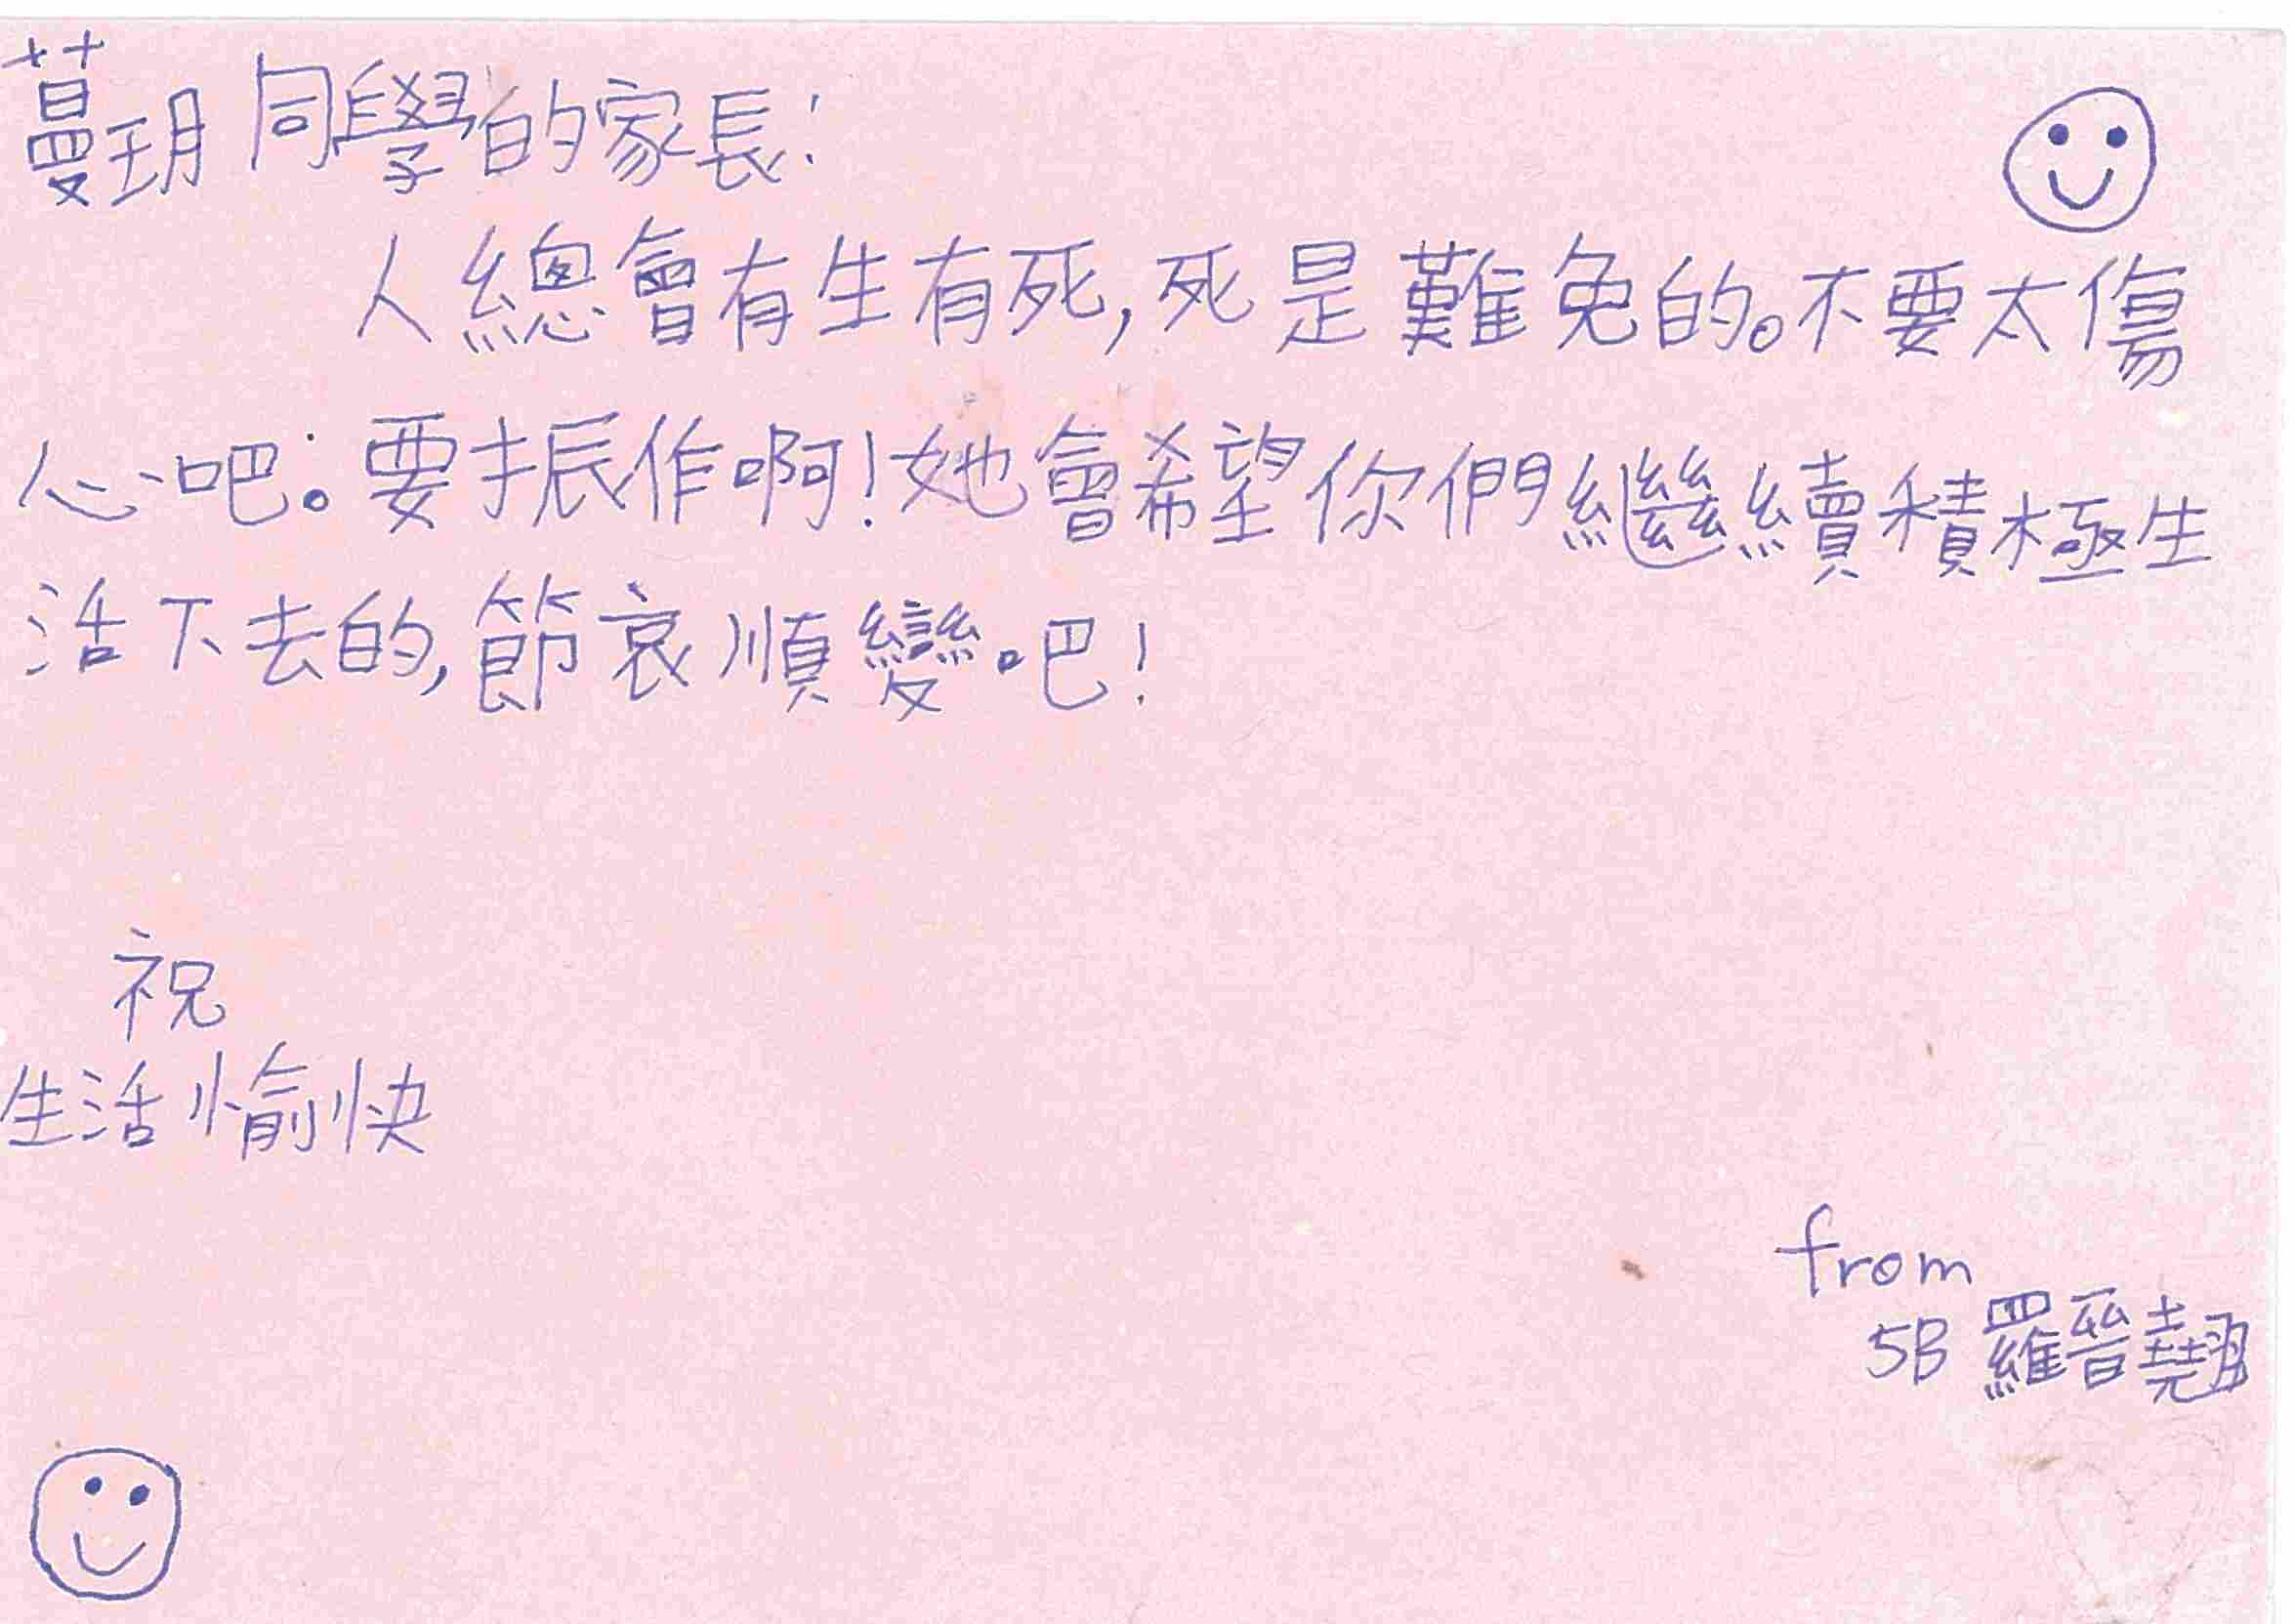 蔓玥同學的家長：
人總會有生有死，死是難免的。不要太傷
心吧。要振作啊！她會希望你們繼續積極生
活下去的，節哀順變吧！
祝
生活愉快
from
5B 羅晉翹